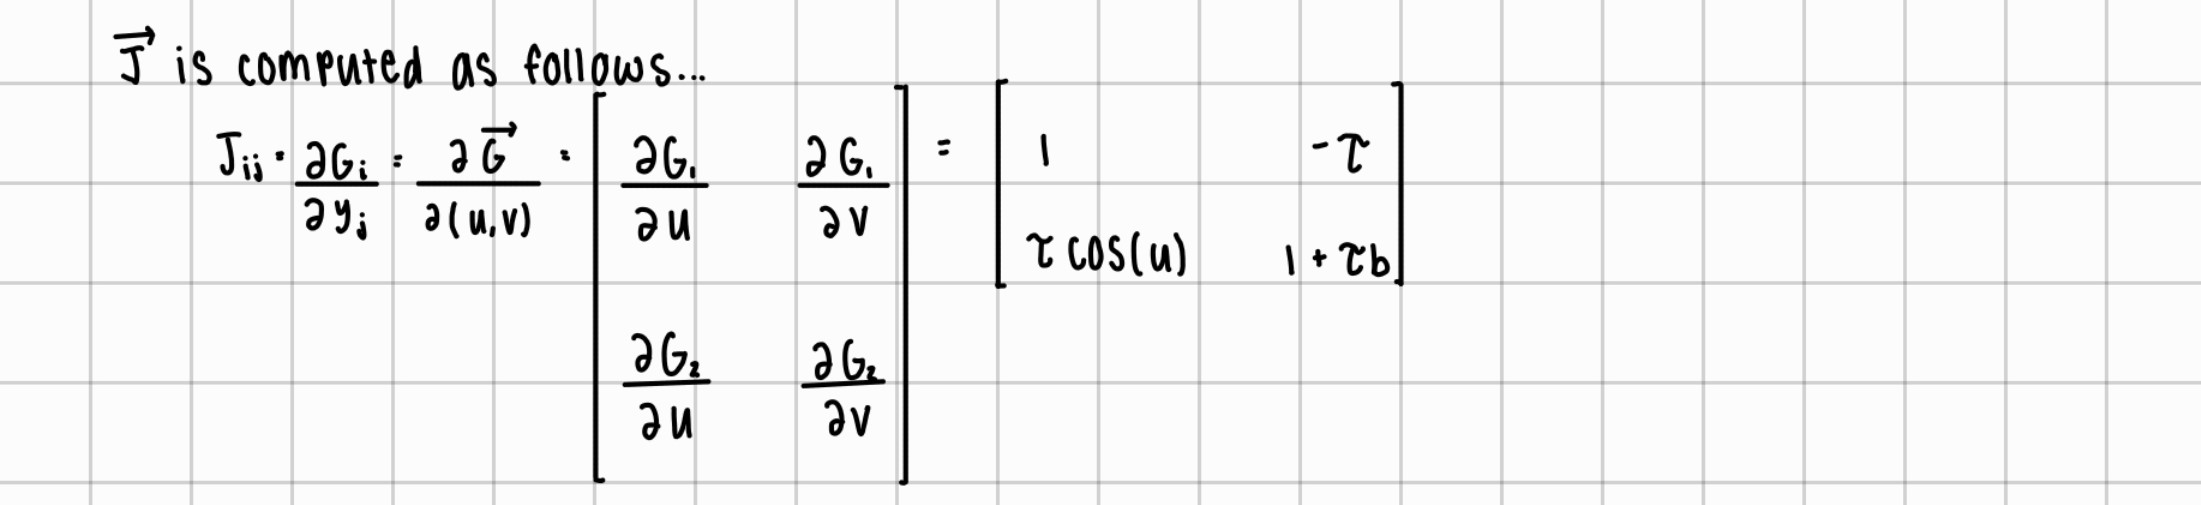 $\vec{J}$ is computed as follows...
$J_{ij} = \frac{\partial G_i}{\partial y_j} = \frac{\partial \vec{G}}{\partial (u,v)} = \begin{bmatrix} \frac{\partial G_1}{\partial u} & \frac{\partial G_1}{\partial v} \\ \frac{\partial G_2}{\partial u} & \frac{\partial G_2}{\partial v} \end{bmatrix} = \begin{bmatrix} 1 & -\tau \\ \tau \cos(u) & 1 + \tau b \end{bmatrix}$